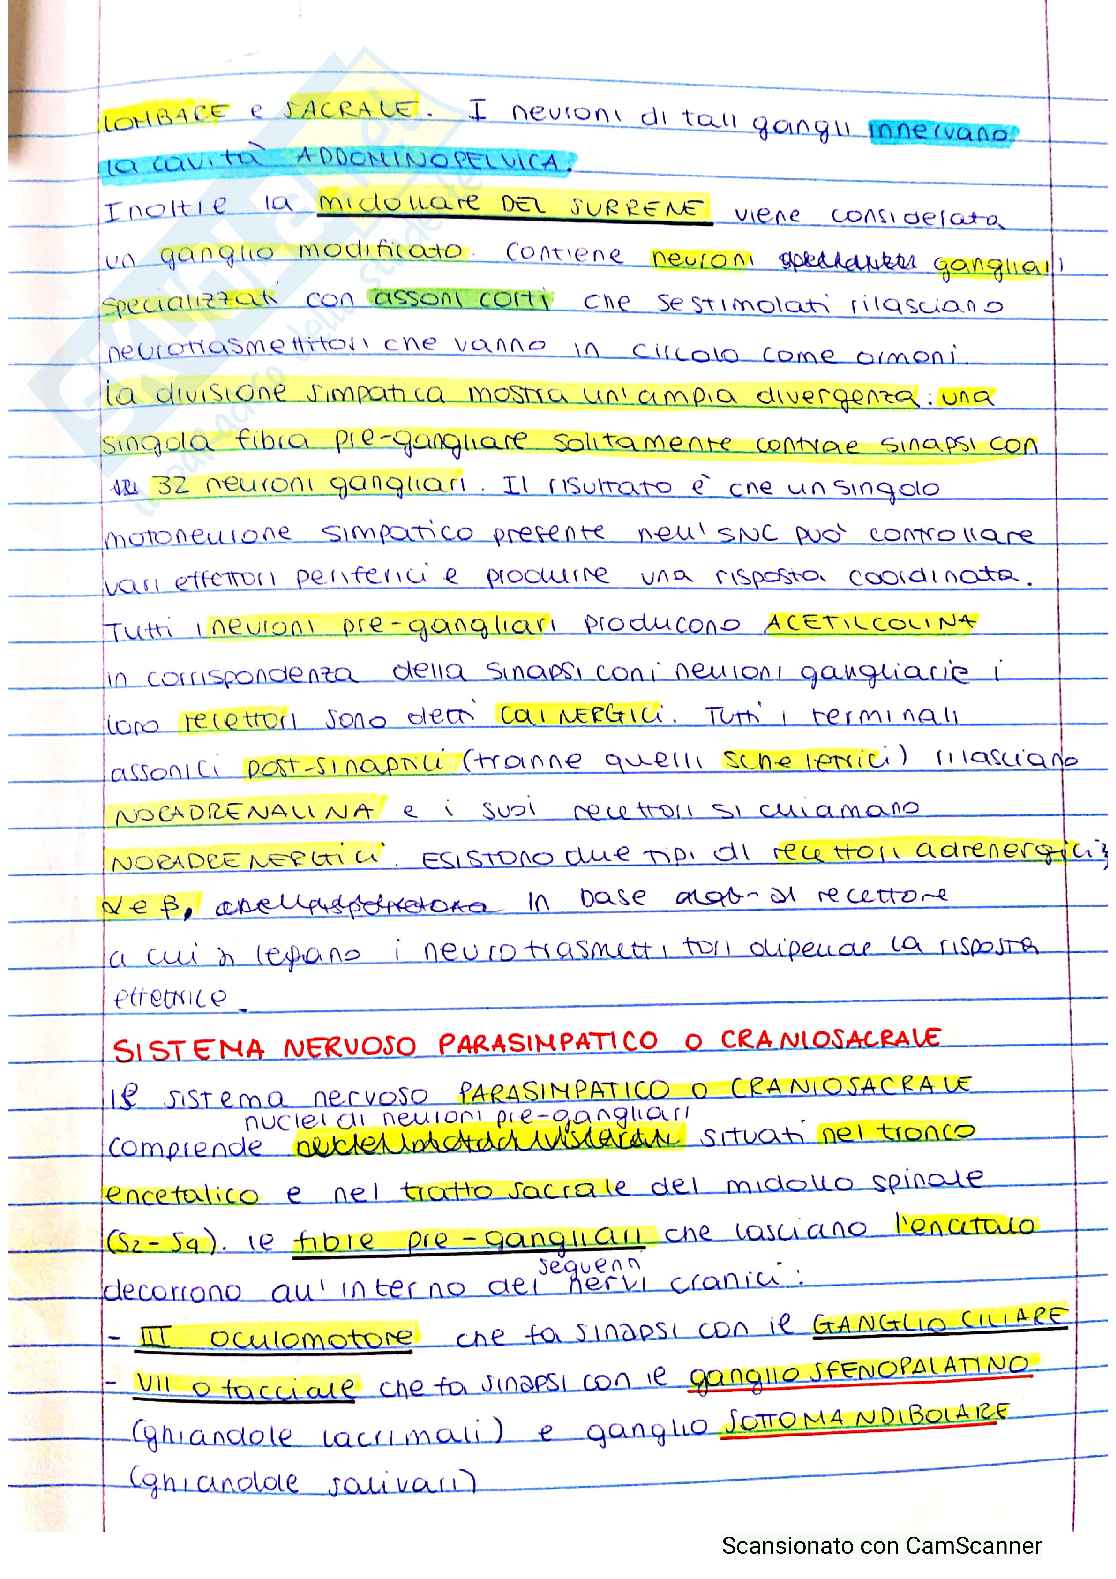 LOMBARE e SACRALE. I neuroni di tali gangli innervano
la cavità ADDOMINOPELVICA.
Inoltre la midollare DEL SURRENE viene considerata
un ganglio modificato. Contiene neuroni gangliari
specializzati con assoni corti che se stimolati rilasciano
neurotrasmettitori che vanno in circolo come ormoni.
la divisione simpatica mostra un'ampia divergenza: una
singola fibra pre-gangliare solitamente contrae sinapsi con
32 neuroni gangliari. Il risultato è che un singolo
motoneurone simpatico presente nell'SNC può controllare
vari effettori periferici e produrre una risposta coordinata.
Tutti i neuroni pre-gangliari producono ACETILCOLINA
in corrispondenza della sinapsi con i neuroni gangliari e i
loro recettori sono detti COLINERGICI. Tutti i terminali
assonici post-sinaptici (tranne quelli scheletrici) rilasciano
NORADRENALINA e i suoi recettori si chiamano
NORADRENERGICI. ESISTONO due tipi di recettori adrenergici:
α e β, in base al recettore
a cui si legano i neurotrasmettitori dipende la risposta
effettrice.
SISTEMA NERVOSO PARASIMPATICO O CRANIOSACRALE
Il sistema nervoso PARASIMPATICO O CRANIOSACRALE
nuclei di neuroni pre-gangliari
comprende situati nel tronco
encefalico e nel tratto sacrale del midollo spinale
(S2-S4). le fibre pre-gangliari che lasciano l'encefalo
seguenti
decorrono all'interno dei nervi cranici:
- III oculomotore che fa sinapsi con il GANGLIO CILIARE
- VII o facciale che fa sinapsi con il ganglio SFENOPALATINO
(ghiandole lacrimali) e ganglio SOTTOMANDIBOLARE
(ghiandole salivari)
Scansionato con CamScanner